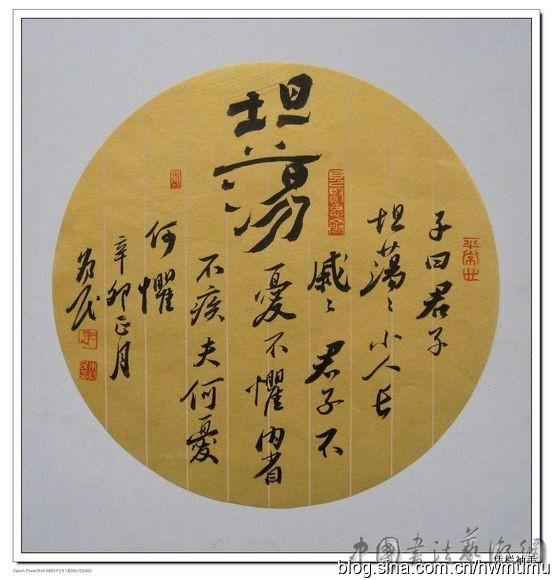 坦蕩
子曰君子
坦蕩〻小人長
戚〻君子不
憂不懼內省
不疚夫何憂
何懼
辛卯正月
平常世
中國書法藝術網
blog.sina.com.cn/nwmumu